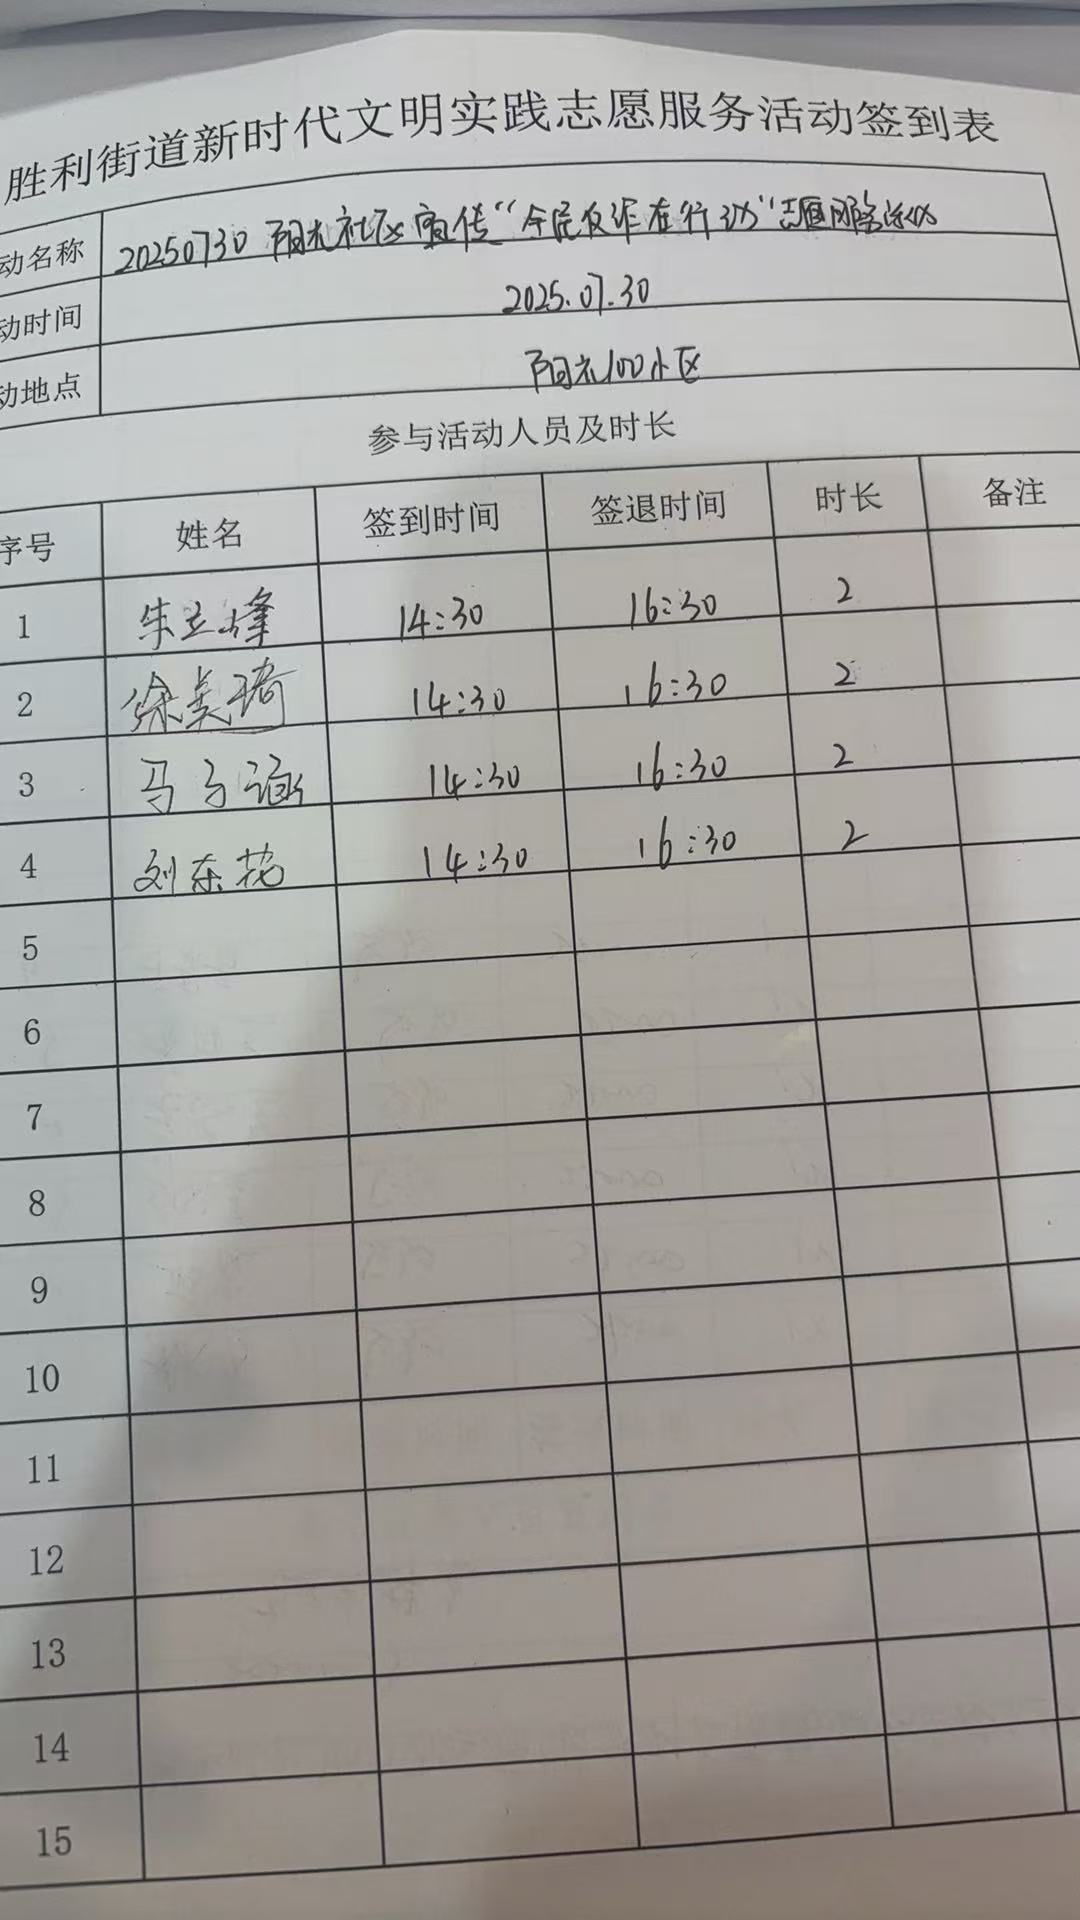 胜利街道新时代文明实践志愿服务活动签到表
动名称 20250730 阳光社区宣传“全民反诈在行动”志愿服务活动
动时间 2025.07.30
动地点 阳光100小区
参与活动人员及时长
序号 姓名 签到时间 签退时间 时长 备注
1 朱立峰 14:30 16:30 2
2 徐美琦 14:30 16:30 2
3 马子涵 14:30 16:30 2
4 刘东花 14:30 16:30 2
5
6
7
8
9
10
11
12
13
14
15